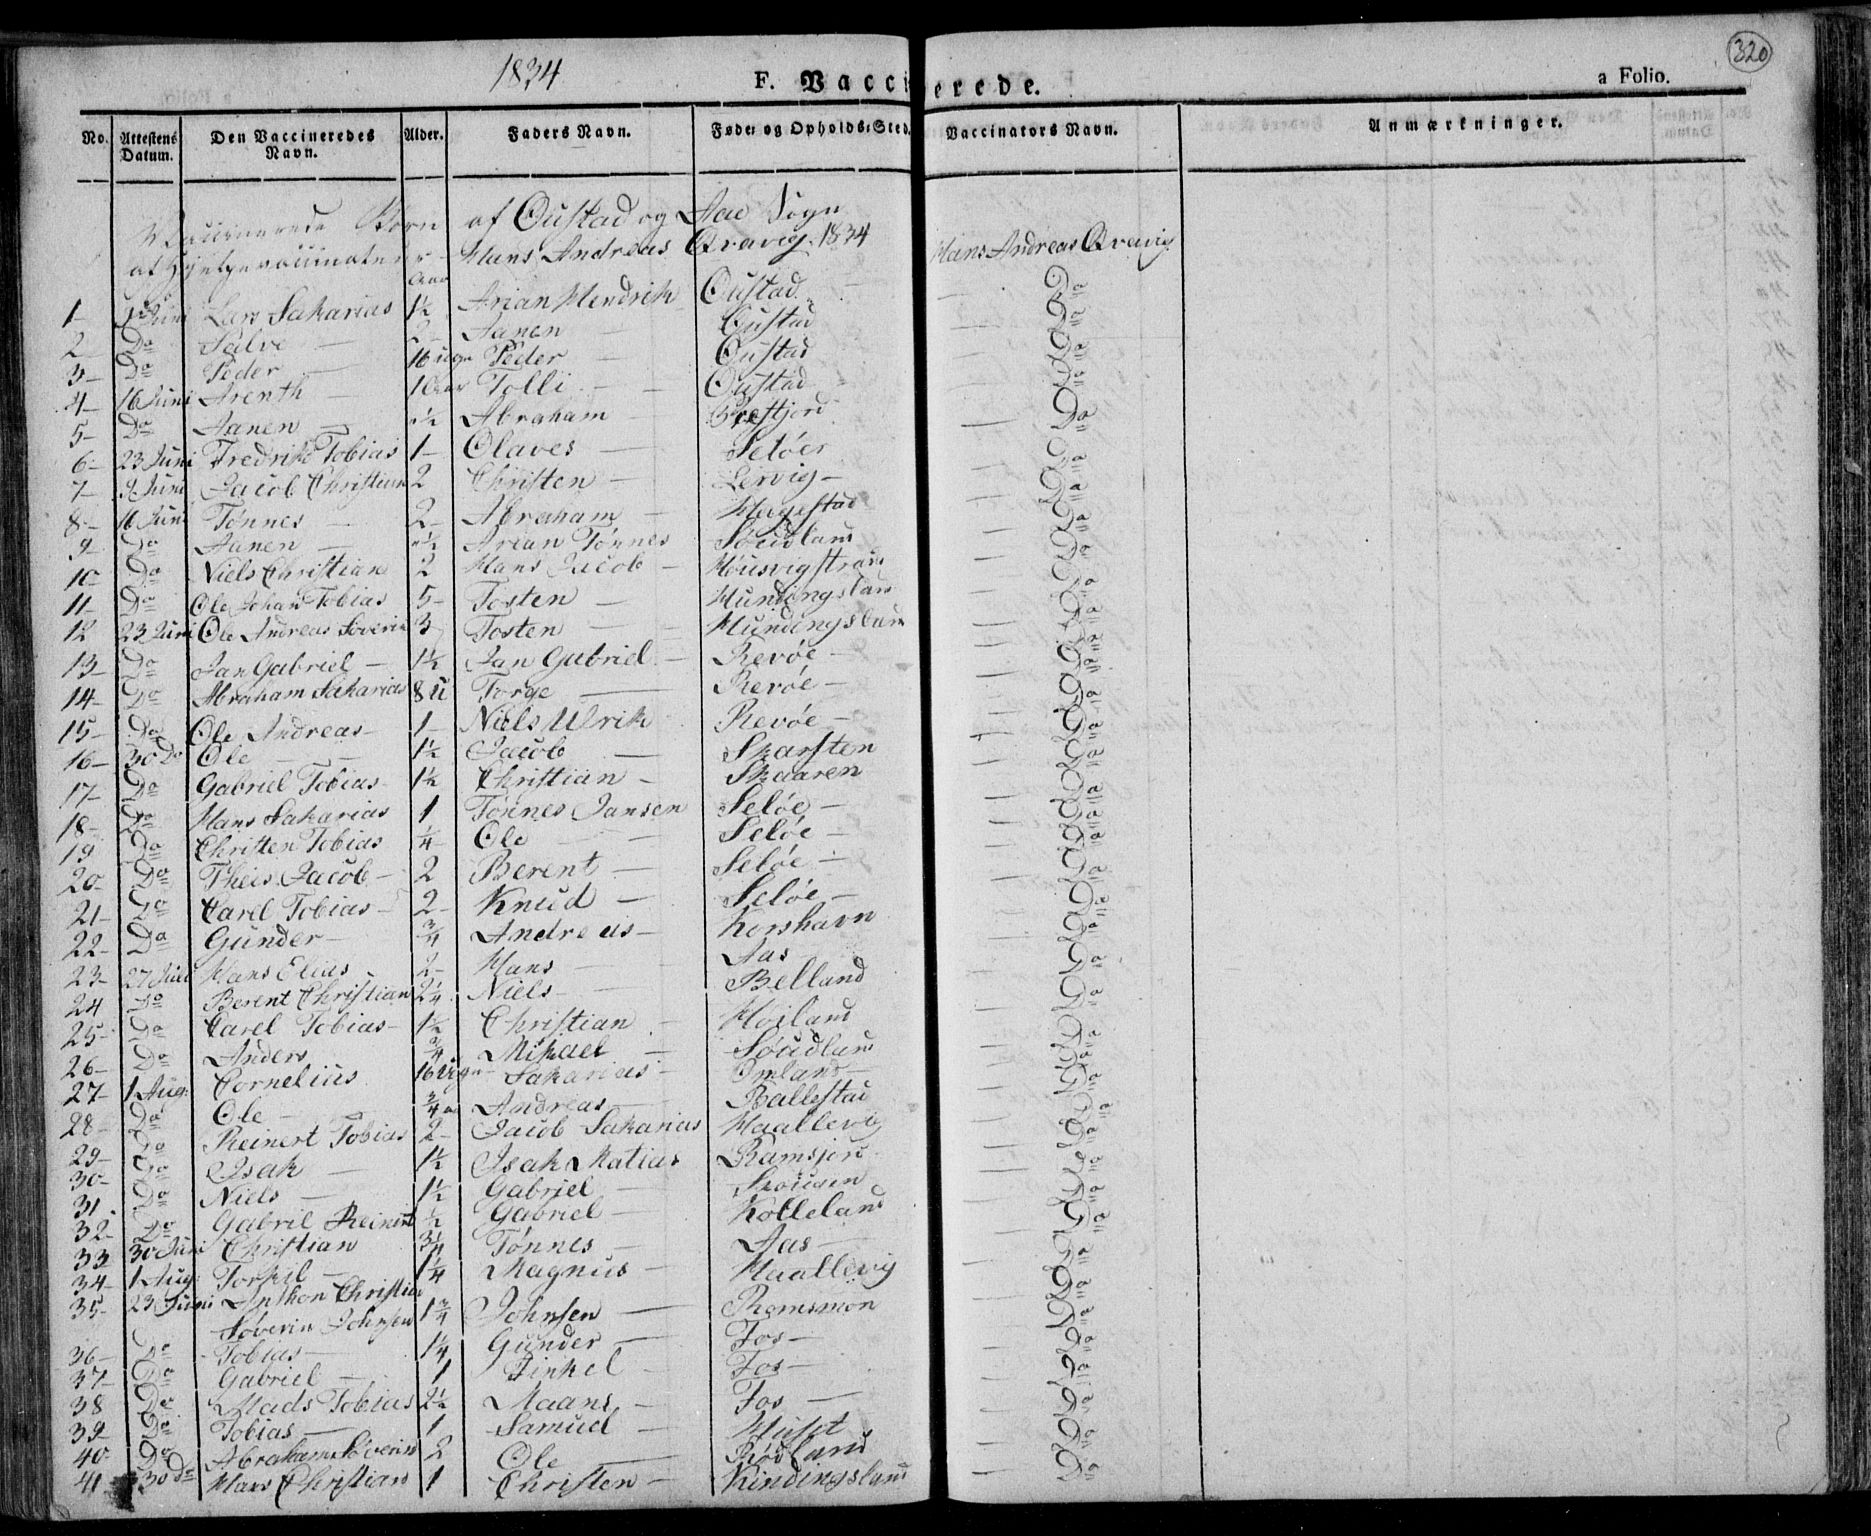 320
1834
F. Vaccinerede.
a Folio.
No. Attestens Datum. Den Vaccineredes Navn. Alder. Faders Navn. Føde- og Opholds-Sted. Vaccinators Navn. Anmærkninger.
Vaccinerede Børn af Oustad og Aae Sogn
af Hjelpevaccinateur Hans Andreas Qvavig 1834 Hans Andreas Qvavig
Aar
1 Juni Lars Sakarias 1½ Arian Hendrik Oustad Do
2 Do Salve 2 Aanen Oustad Do
3 Do Peder 16 Peder Oustad Do
4 16 Juni Arenth 1 Aar Tolli Oustad Do
5 Do Aanen ½ Abraham Do
6 23 Juni Fredrik Tobias 1 Olaves Seløer Do
7 9 Juni Jacob Christian 2 Christen Lervig Do
8 16 Juni Tønnes 2 Abraham Hugestad Do
9 Do Aanen ½ Arian Tønnes Søudland Do
10 Do Niels Christian 2 Hans Jacob Housvigstrand Do
11 Do Ole Johan Tobias 5 Tosten Hundingsland Do
12 23 Juni Ole Andreas Soverin 3 Tosten Hundingsland Do
13 Do Jan Gabriel 1½ Jan Gabriel Revøe Do
14 Do Abraham Sakarias 8 U Torge Revøe Do
15 Do Ole Andreas 1 Niels Ulrik Revøe Do
16 30 Do Ole 1½ Jacob Skarsten Do
17 Do Gabriel Tobias 1½ Christian Skaaren Do
18 Do Hans Sakarias 1 Tønnes Jansen Seløe Do
19 Do Christen Tobias ¼ Ole Seløe Do
20 Do Theis Jacob 2 Berent Seløe Do
21 Do Carel Tobias 2 Knud Seløe Do
22 Do Gunder ¾ Andreas Korshavn Do
23 27 Juli Hans Elias 2 Hans Aas Do
24 Do Berent Christian 2¼ Niels Belland Do
25 Do Carel Tobias 1½ Christian Høiland Do
26 Do Anders ¾ Mikael Søudland Do
27 1 Aug. Cornelius 16 Sakarias Omland Do
28 Do Ole ¾ Andreas Ballestad Do
29 Do Reinert Tobias 2 Jacob Sakarias Haallevig Do
30 Do Isak 1½ Isak Matias Ramsjord Do
31 Do Niels 1½ Gabriel Skougen Do
32 Do Gabriel Reinert ½ Gabriel Kolleland Do
33 30 Juni Christian 3¼ Tønnes Aas Do
34 1 Aug: Torkel 1¼ Magnus Haallevig Do
35 23 Juni Anthon Christian
Søverin Johnsen 1¾ Johnsen Do
36 Do Tobias 1¼ Gunder Fos Do
37 Do Gabriel 1 Finkel Fos Do
38 Do Mads Tobias 2½ Maans Fos Do
39 Do Tobias 1 Samuel Huset Do
40 Do Abraham Søverin 2 Ole Rødland Do
41 30 Do Hans Christian 1 Christen Kindingsland Do